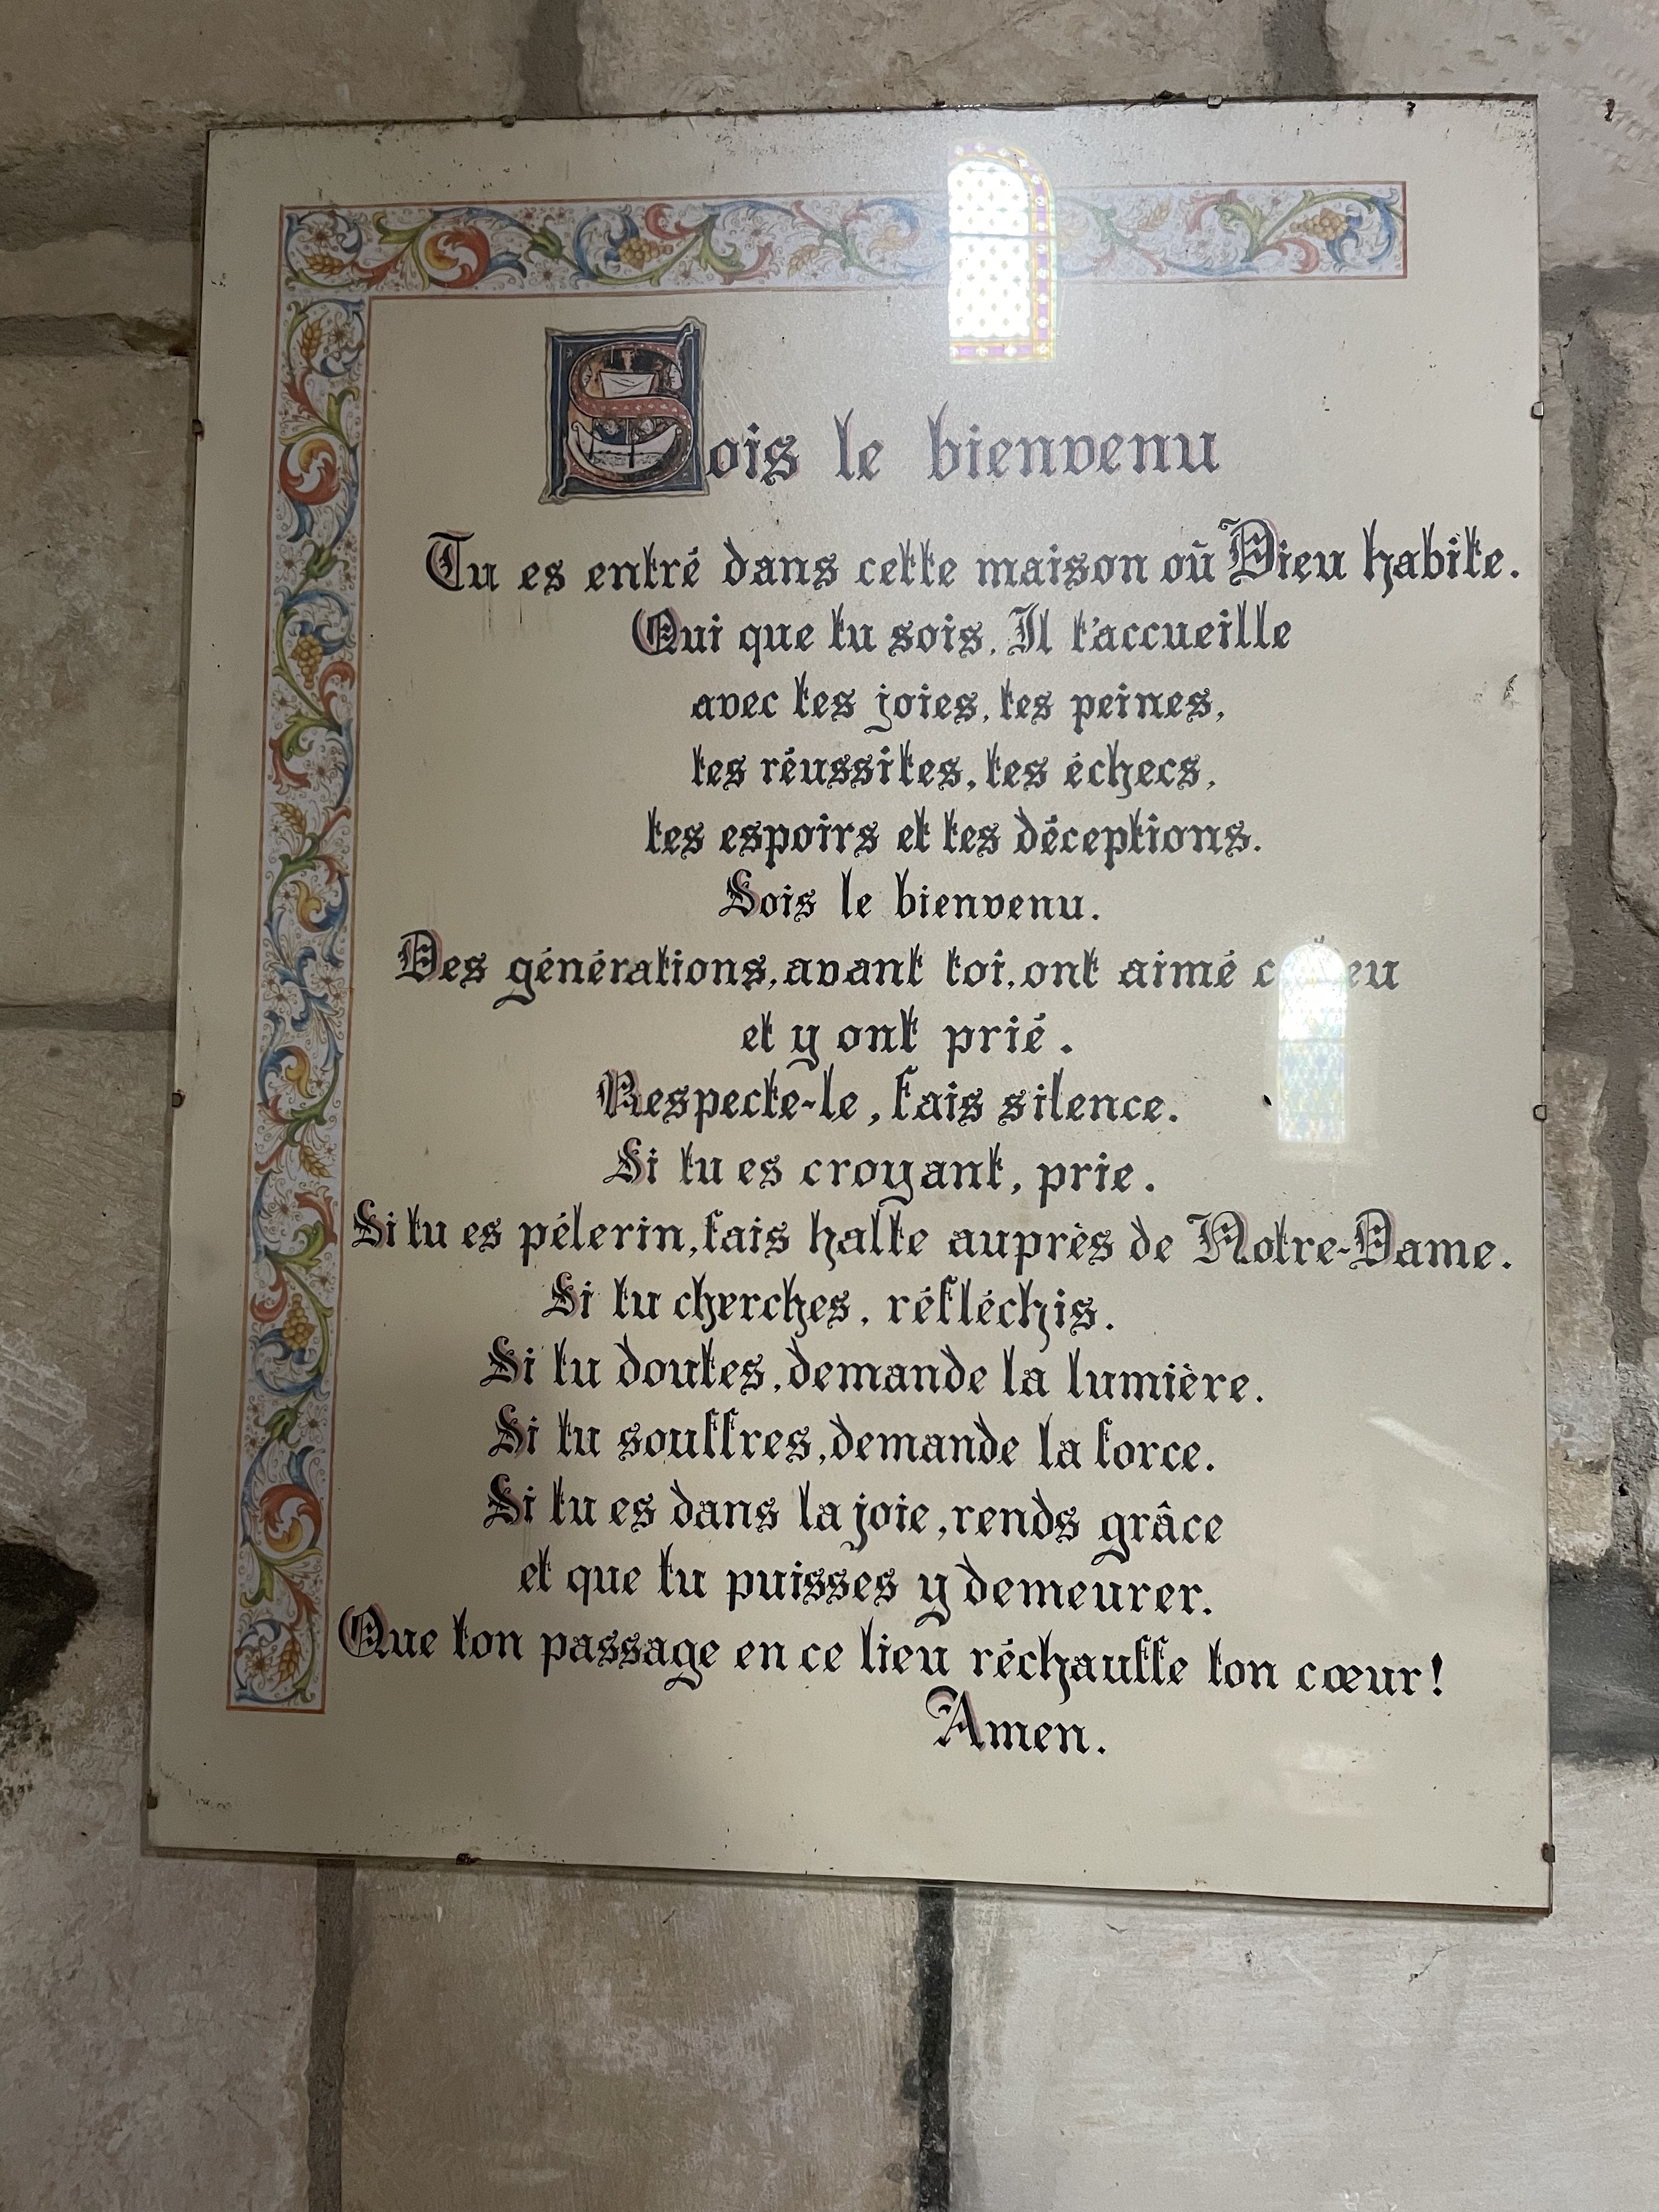 Sois le bienvenu
Tu es entré dans cette maison où Dieu habite.
Qui que tu sois, Il t'accueille
avec tes joies, tes peines,
tes réussites, tes échecs,
tes espoirs et tes déceptions.
Sois le bienvenu.
Des générations, avant toi, ont aimé
et y ont prié.
Respecte-le, fais silence.
Si tu es croyant, prie.
Si tu es pélerin, fais halte auprès de Notre-Dame.
Si tu cherches, réfléchis.
Si tu doutes, demande la lumière.
Si tu souffres, demande la force.
Si tu es dans la joie, rends grâce
et que tu puisses y demeurer.
Que ton passage en ce lieu réchauffe ton cœur!
Amen.